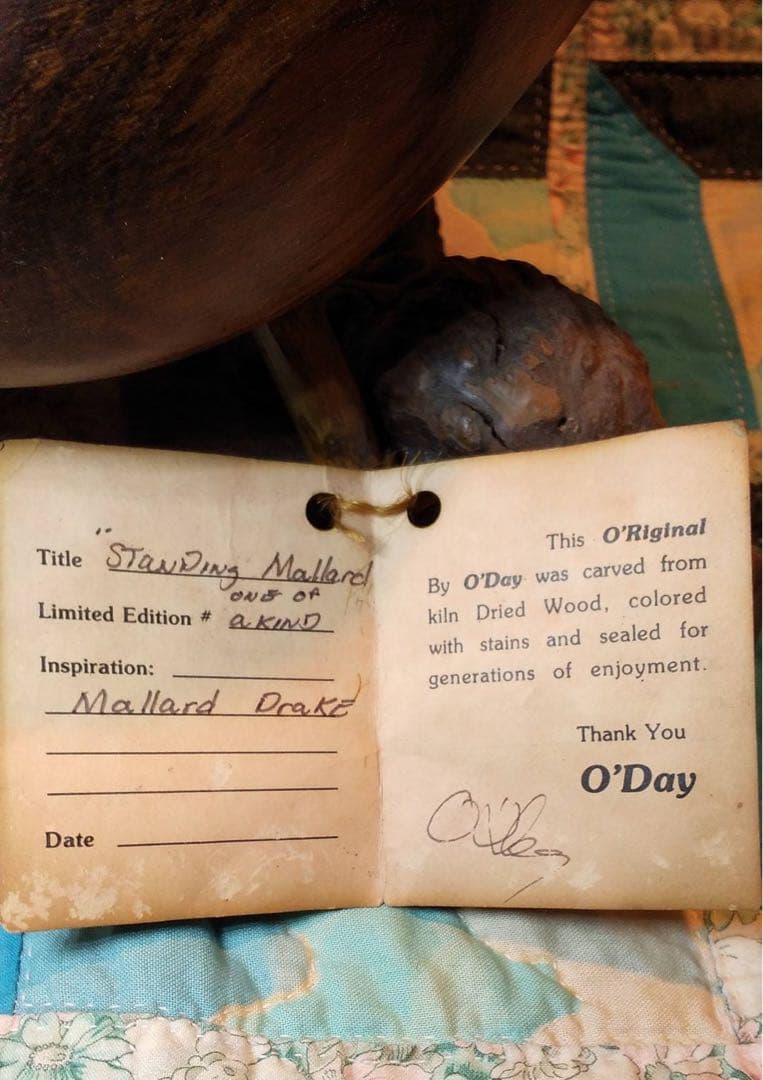 Title "STANDING Mallard
ONE OF
Limited Edition # a KIND
Inspiration:
Mallard DrakE
Date
This O'Riginal
By O'Day was carved from
kiln Dried Wood, colored
with stains and sealed for
generations of enjoyment.
Thank You
O'Day
O'Day